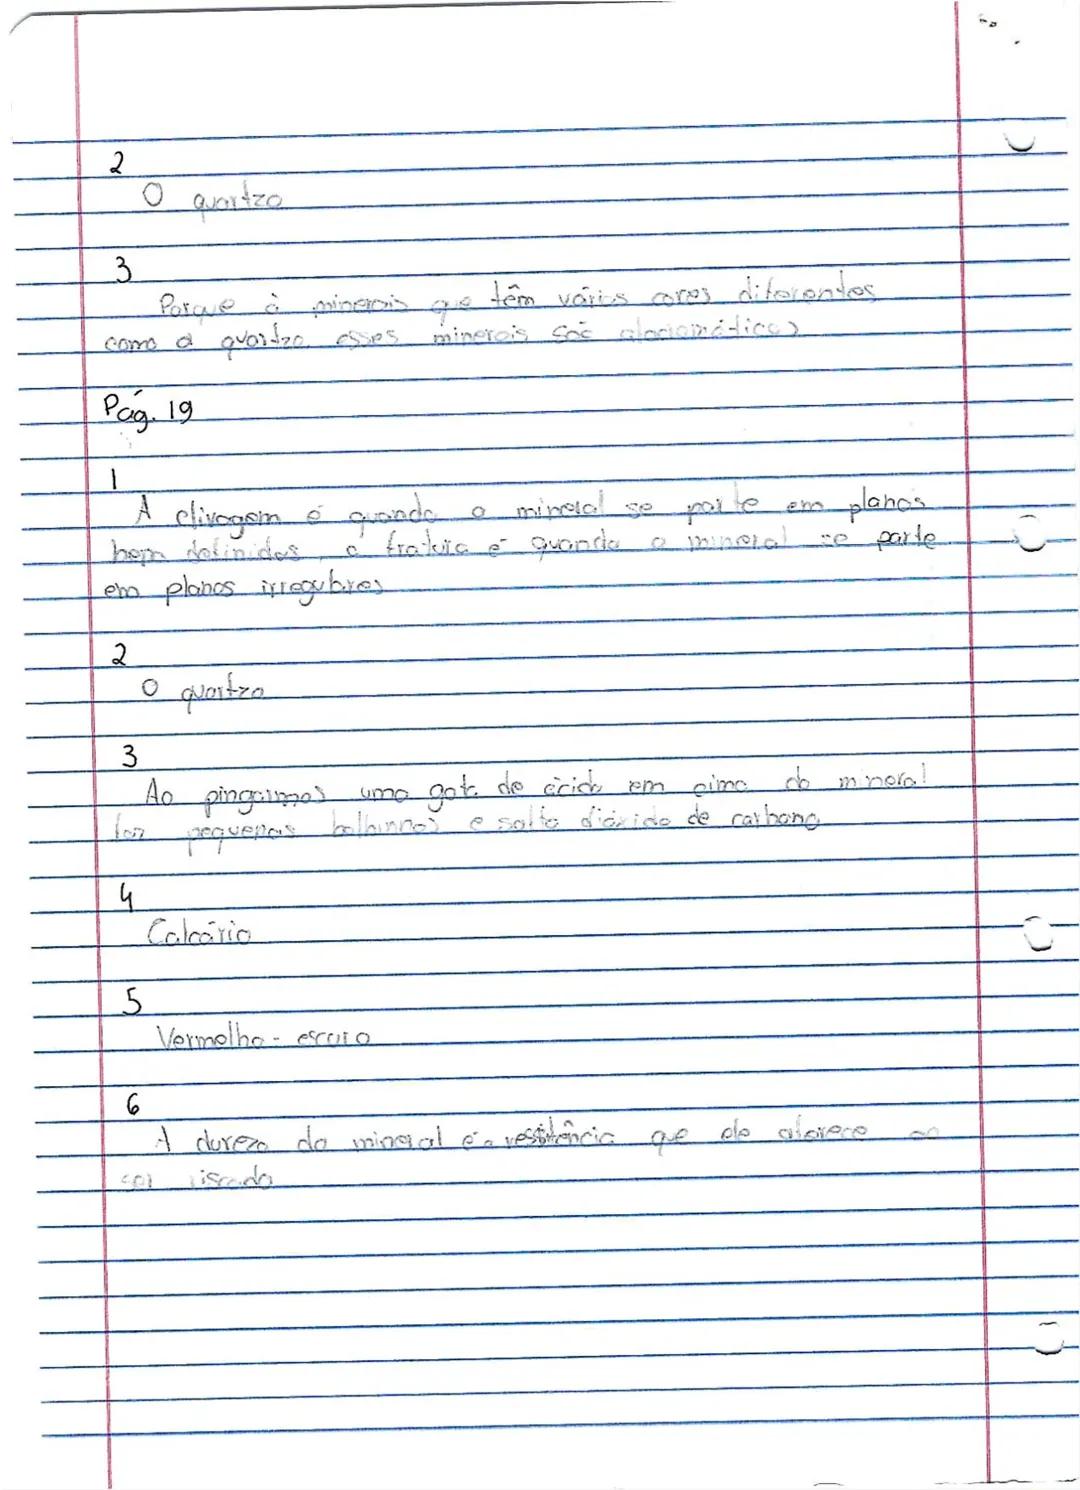 2
O quartzo
3
Porque à minerais que têm vários cores diferentes
como o quartzo esses minerais são alocromáticos
Pág. 19
1
A clivagem é quando o mineral se parte em planos
bem definidos, a fratura é quando o mineral se parte
em planos irregulares
2
O quartzo
3
Ao pingarmos uma gota de ácido em cima do mineral
faz pequenas bolhinhas e solta dióxido de carbono
4
Calcário
5
Vermelho-escuro
6
A dureza do mineral é a ressitência que ele oferece ao
ser riscado